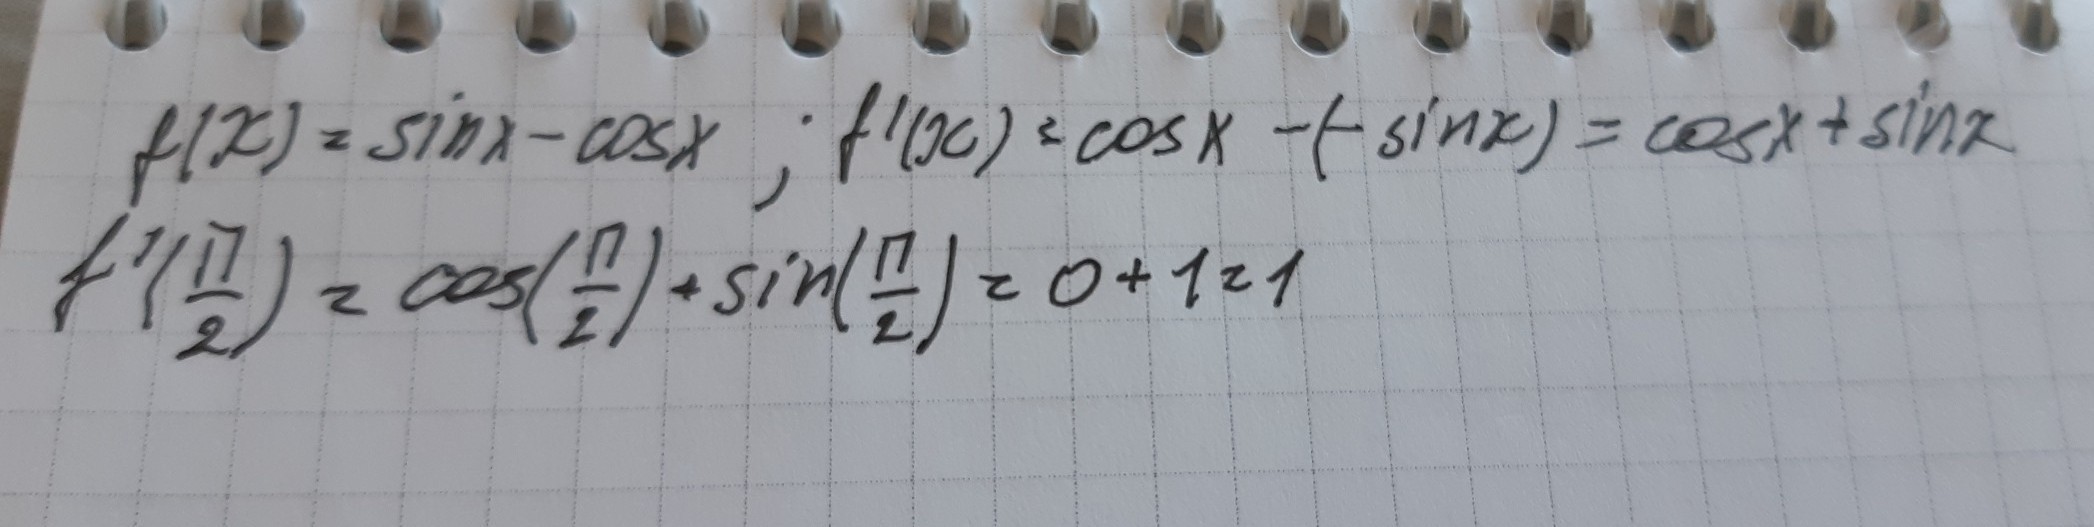 f(x) = sinx - cosx ; f'(x) = cosx - (- sinx) = cosx + sinx
f'(π/2) = cos(π/2) + sin(π/2) = 0 + 1 = 1